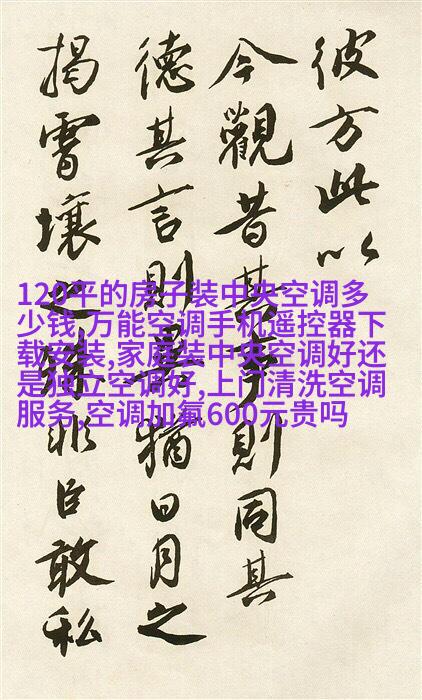 彼方此以
今觀昔其事則同其
德其言則異猶日月之
揭霄壤之殊非臣敢私
120平的房子装中央空调多
少钱,万能空调手机遥控器下
载安装,家庭装中央空调好还
是独立空调好,上门清洗空调
服务,空调加氟600元贵吗